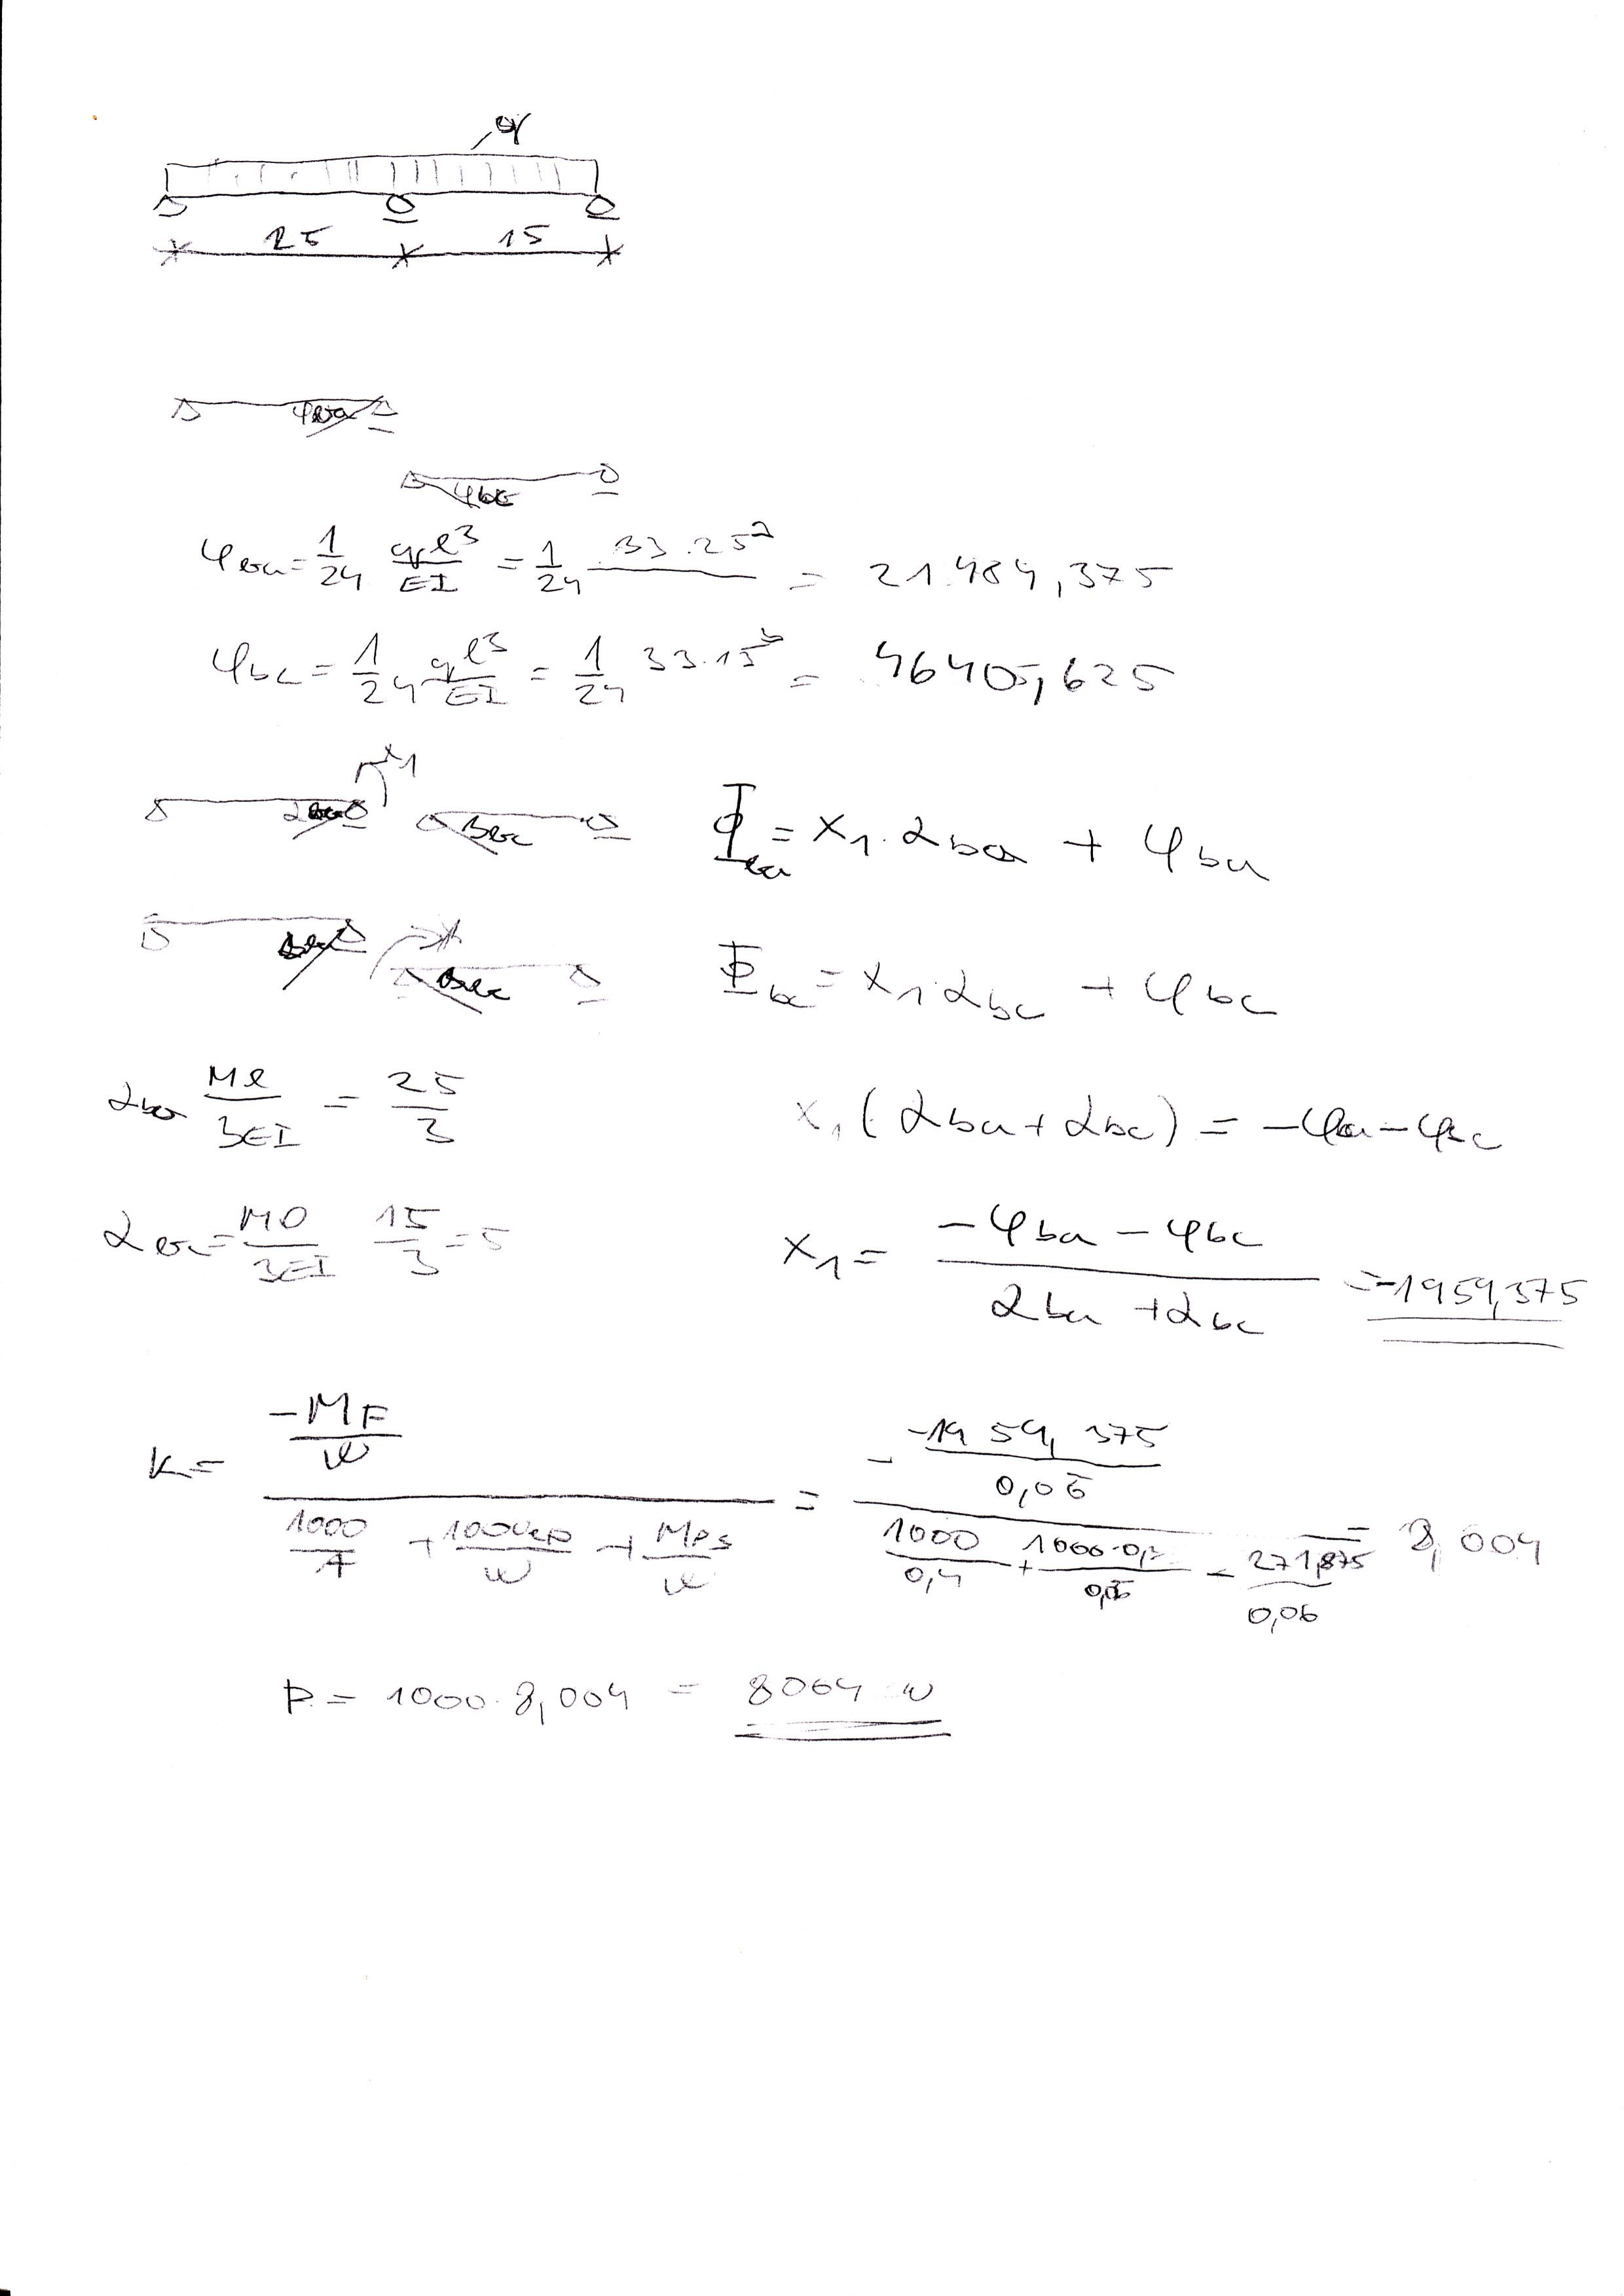 q
25 15
φba
φbc
φba = 1/24 ql³/EI = 1/24 33.25³ = 21.484,375
φbc = 1/24 ql³/EI = 1/24 33.15³ = 4640,625
x1
Φba = x1.αba + φba
Φbc = x1.αbc + φbc
αba Ml/3EI = 25/3
x1(αba+αbc) = -φba-φbc
αbc = Ml/3EI 15/3 = 5
x1 = (-φba - φbc)/(αba + αbc) = -1959,375
K = (-MF/W)/(1000/A + 1000ep/W + MPS/W) = (- -1959,375/0,06)/(1000/0,4 + 1000.0,7/0,06 - 271,875/0,06) = 8,004
P = 1000.8,004 = 8004